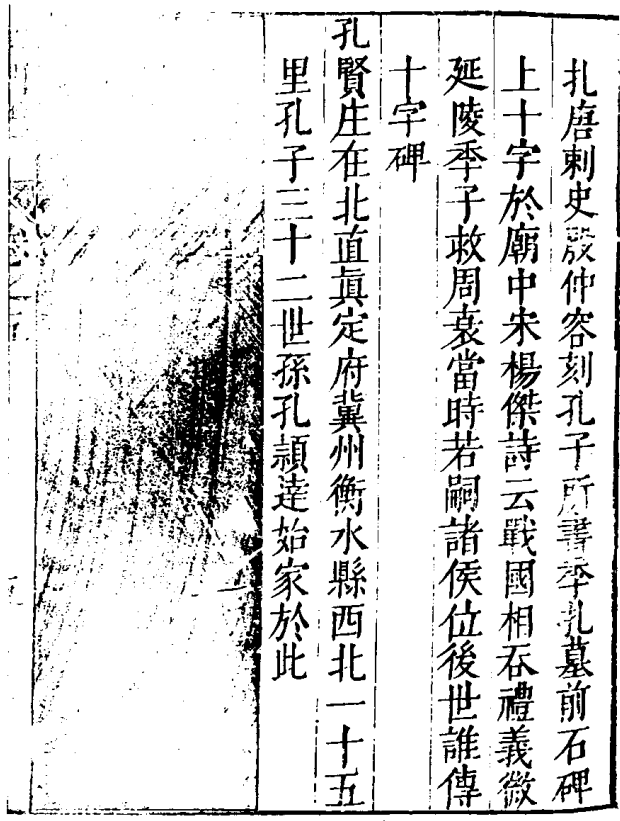 扎唐刺史殷仲容刻孔子所書季扎墓前石碑
上十字於廟中宋楊傑詩云戰國相吞禮義微
延陵季子救周衰當時若嗣諸侯位後世誰傳
十字碑
孔賢庄在北直真定府冀州衡水縣西北一十五
里孔子三十二世孫孔穎達始家於此